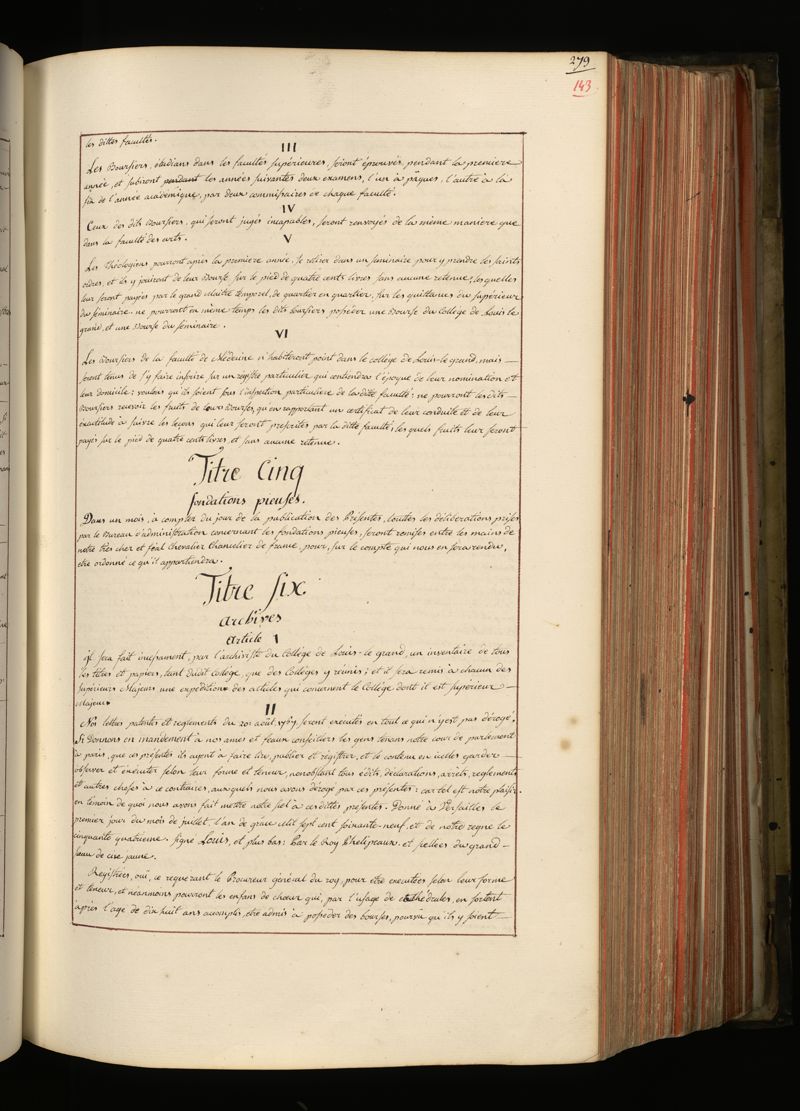 279
143
les dittes facultés.
III
Les Boursiers, étudians dans les facultés supérieures, seront éprouvés, pendant la premiere
année, et subiront pendant les années suivantes deux examens, l'un à pâques, l'autre à la
fin de l'année académique, par deux commissaires de chaque faculté.
IV
Ceux des dits Boursiers, qui seront jugés incapables, seront renvoyés de la même maniere que
dans la faculté des arts.
V
Les Théologiens pourront après la premiere année, se retirer dans un seminaire pour y prendre les saints
ordres, et ils y jouiront de leur Bourse sur le pied de quatre cents livres sans aucune retenue; les quelles
leur seront payées par le grand Maitre temporel, de quartier en quartier, sur les quittances du supérieur
du séminaire. ne pourront en même temps les dits boursiers posséder une Bourse du College de Louis le
grand, et une Bourse du séminaire.
VI
Les Boursiers de la faculté de Médecine n'habiteront point dans le collège de Louis-le grand, mais
seront tenus de s'y faire inscrire sur un registre particulier qui contiendra l'époque de leur nomination et
leur domicile: voulons qu'ils soient sous l'inspection particuliere de la ditte faculté: ne pourront les dits
Boursiers recevoir les fruits de leurs Bourses, qu'en rapportant un certificat de leur conduite et de leur
exactitude à suivre les leçons qui leur seront prescrites par la ditte faculté; les quels fruits leur seront
payés sur le pied de quatre cents livres et sans aucune retenue.
Titre Cinq
fondations pieuses.
Dans un mois, à compter du jour de la publication des Présentes, touttes les déliberations prises
par le Bureau d'administration concernant les fondations pieuses, seront remises entre les mains de
notre très cher et féal Chevalier Chancelier de france, pour, sur le compte qui nous en sera rendu,
etre ordonné ce qu'il appartiendra.
Titre Six
Archives
Article I
il sera fait incessament, par l'archiviste du College de Louis-le grand, un inventaire de tous
les titres et papiers, tant dudit College, que des Colleges y réunis; et il sera remis à chacun des
Supérieurs Majeurs, une expédition des articles qui concernent le College dont il est supérieur
Majeur.
II
Nos lettres patentes et reglements du 20 août 1767, seront executés en tout ce qui n'y est pas dérogé.
Si Donnons en mandement à nos amés et feaux conseillers les gens tenans notre cour de parlement
à paris, que ces présentes ils ayent à faire lire, publier et régistrer, et le contenu en icelles garder
observer et éxécuter selon leur forme et teneur, nonobstant tous édits, déclarations, arrêts, reglements
et autres choses à ce contraires, aux quels nous avons dérogé par ces présentes: car tel est notre plaisir.
en témoin de quoi nous avons fait mettre notre scel à ces dittes présentes. Donné à Versailles le
premier jour du mois de juillet, l'an de grace Mil sept cent soixante-neuf, et de notre regne le
cinquante quatrieme. Signé Louis, et plus bas: Par le Roy Phelipeaux. et scellées du grand
sceau de cire jaune.
Registrées, oui, ce requerant le Procureur général du roy, pour etre executées selon leur forme
et teneur, et néanmoins pourront les enfans de chœur qui, par l'usage de cathédrales, en sortent
après l'age de dix huit ans accomplis, etre admis à posséder des bourses, pourvu qu'ils y soient